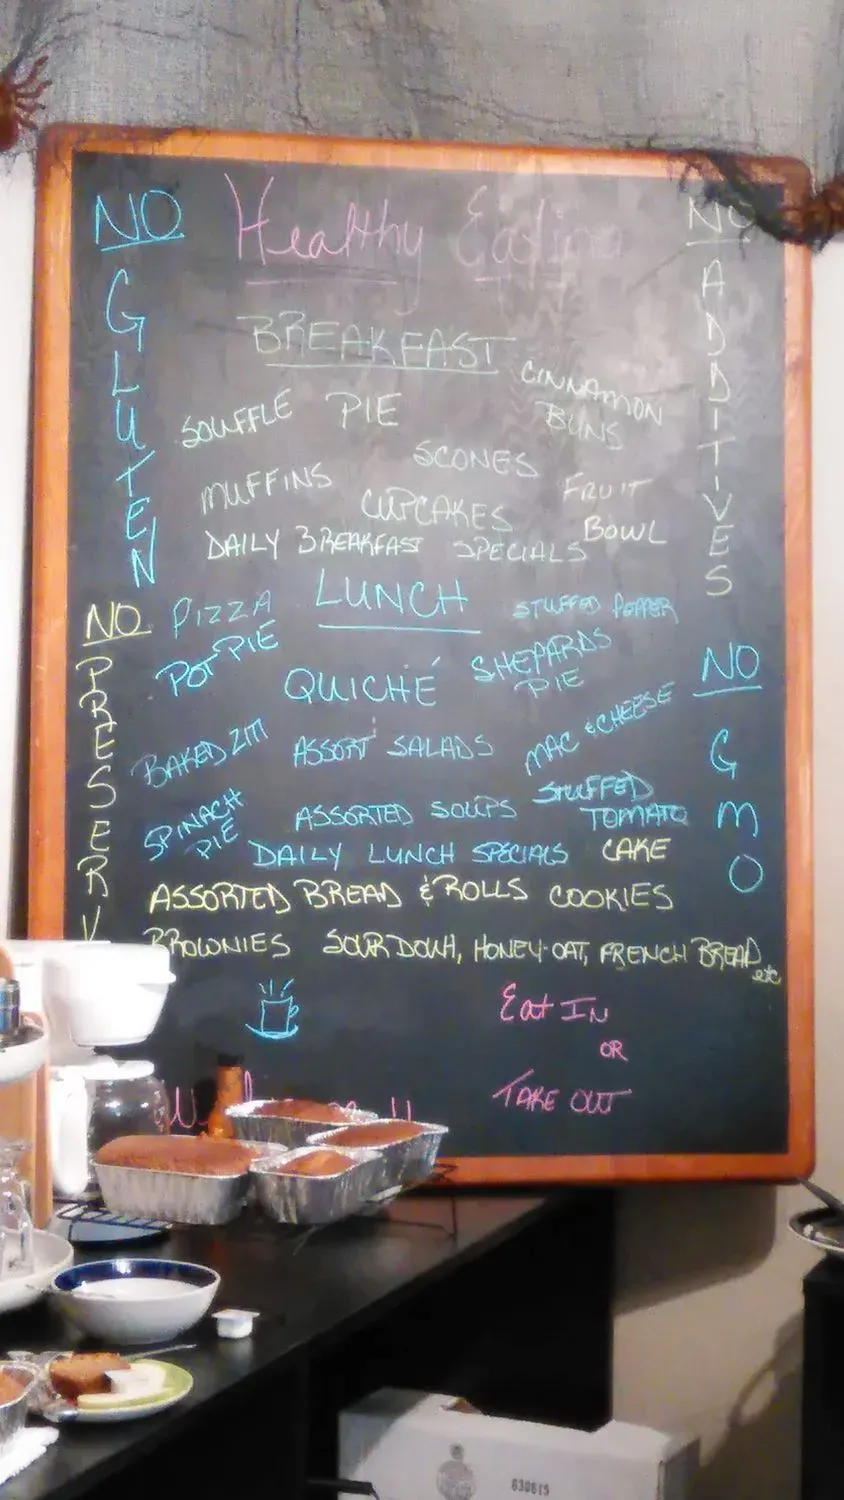 NO Healthy Eating NO
GLUTEN
ADDITIVES
BREAKFAST
SOUFFLE PIE CINNAMON BUNS
SCONES
MUFFINS CUPCAKES FRUIT BOWL
DAILY BREAKFAST SPECIALS
LUNCH
NO
PRESERV
PIZZA STUFFED PEPPER
POT PIE QUICHÉ SHEPARDS PIE
NO
GMO
BAKED ZITI ASSORT SALADS MAC & CHEESE
SPINACH PIE ASSORTED SOUPS STUFFED TOMATO
DAILY LUNCH SPECIALS CAKE
ASSORTED BREAD & ROLLS COOKIES
BROWNIES SOUR DOUH, HONEY-OAT, FRENCH BREAD etc
Eat IN
OR
TAKE OUT
630615